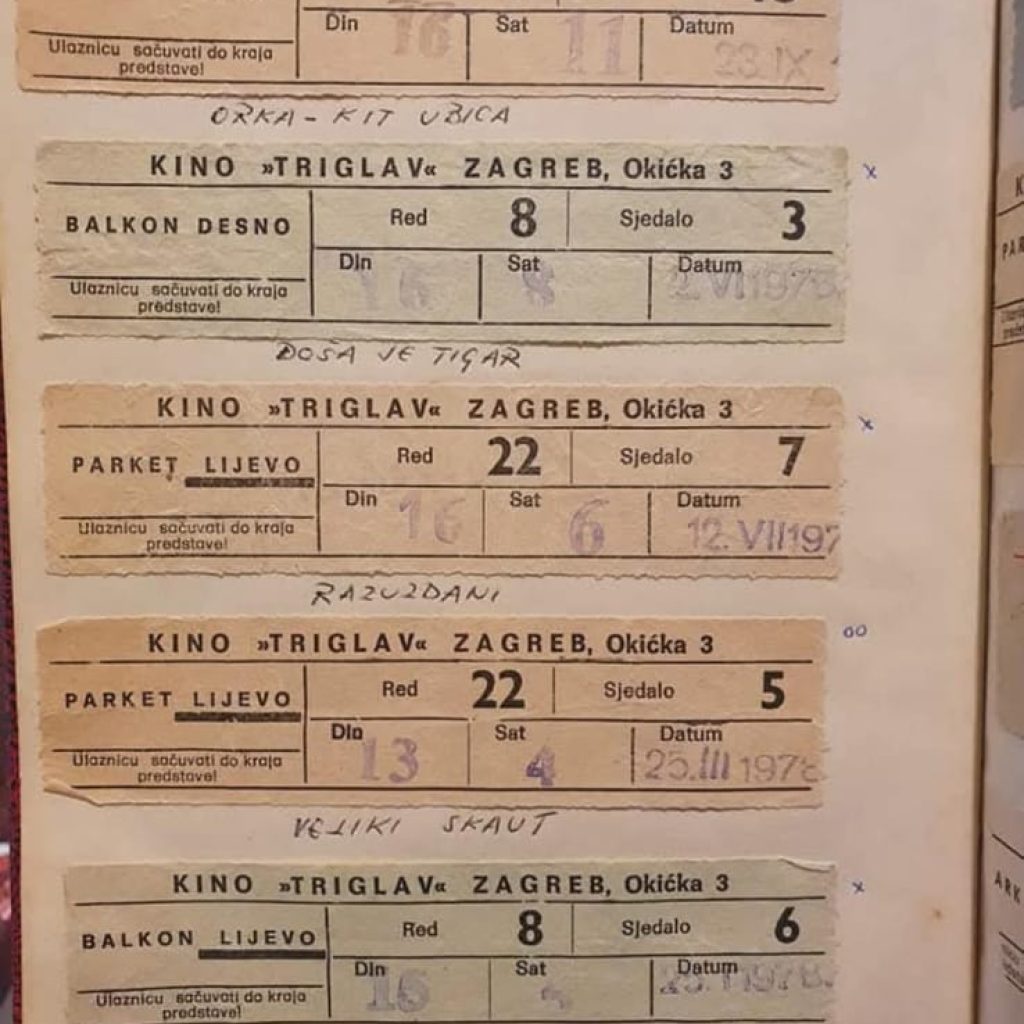 Din Sat Datum
16 11 23.IX
Ulaznicu sačuvati do kraja
predstave!
ORKA - KIT UBICA
KINO »TRIGLAV« ZAGREB, Okićka 3 x
BALKON DESNO Red 8 Sjedalo 3
Din Sat Datum
Ulaznicu sačuvati do kraja
predstave!
16 8 2. VI 1978.
DOŠA JE TIGAR
KINO »TRIGLAV« ZAGREB, Okićka 3 x
PARKET LIJEVO Red 22 Sjedalo 7
Din Sat Datum
Ulaznicu sačuvati do kraja
predstave!
16 6 12. VII 197
RAZUZDANI
KINO »TRIGLAV« ZAGREB, Okićka 3 oo
PARKET LIJEVO Red 22 Sjedalo 5
Din Sat Datum
Ulaznicu sačuvati do kraja
predstave!
13 4 25. III 1978
VELIKI SKAUT
KINO »TRIGLAV« ZAGREB, Okićka 3 x
BALKON LIJEVO Red 8 Sjedalo 6
Din Sat Datum
Ulaznicu sačuvati do kraja
predstave!
16 1978.
PAR
ARK